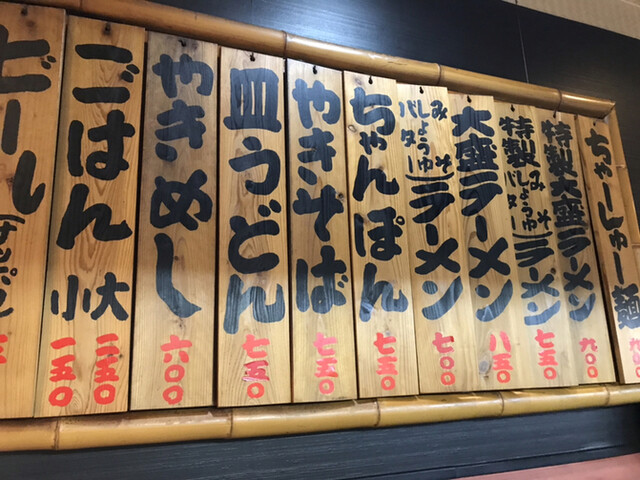 ちゃーしゅー麺
特製大盛ラーメン 九〇〇
特製(みそ しょうゆ バター)ラーメン 七五〇
大盛ラーメン 八五〇
(みそ しょうゆ バター)ラーメン 七〇〇
ちゃんぽん 七五〇
やきそば 七五〇
皿うどん 七五〇
やきめし 六〇〇
ごはん 大 二五〇
小 一五〇
ビール(サッポロ)